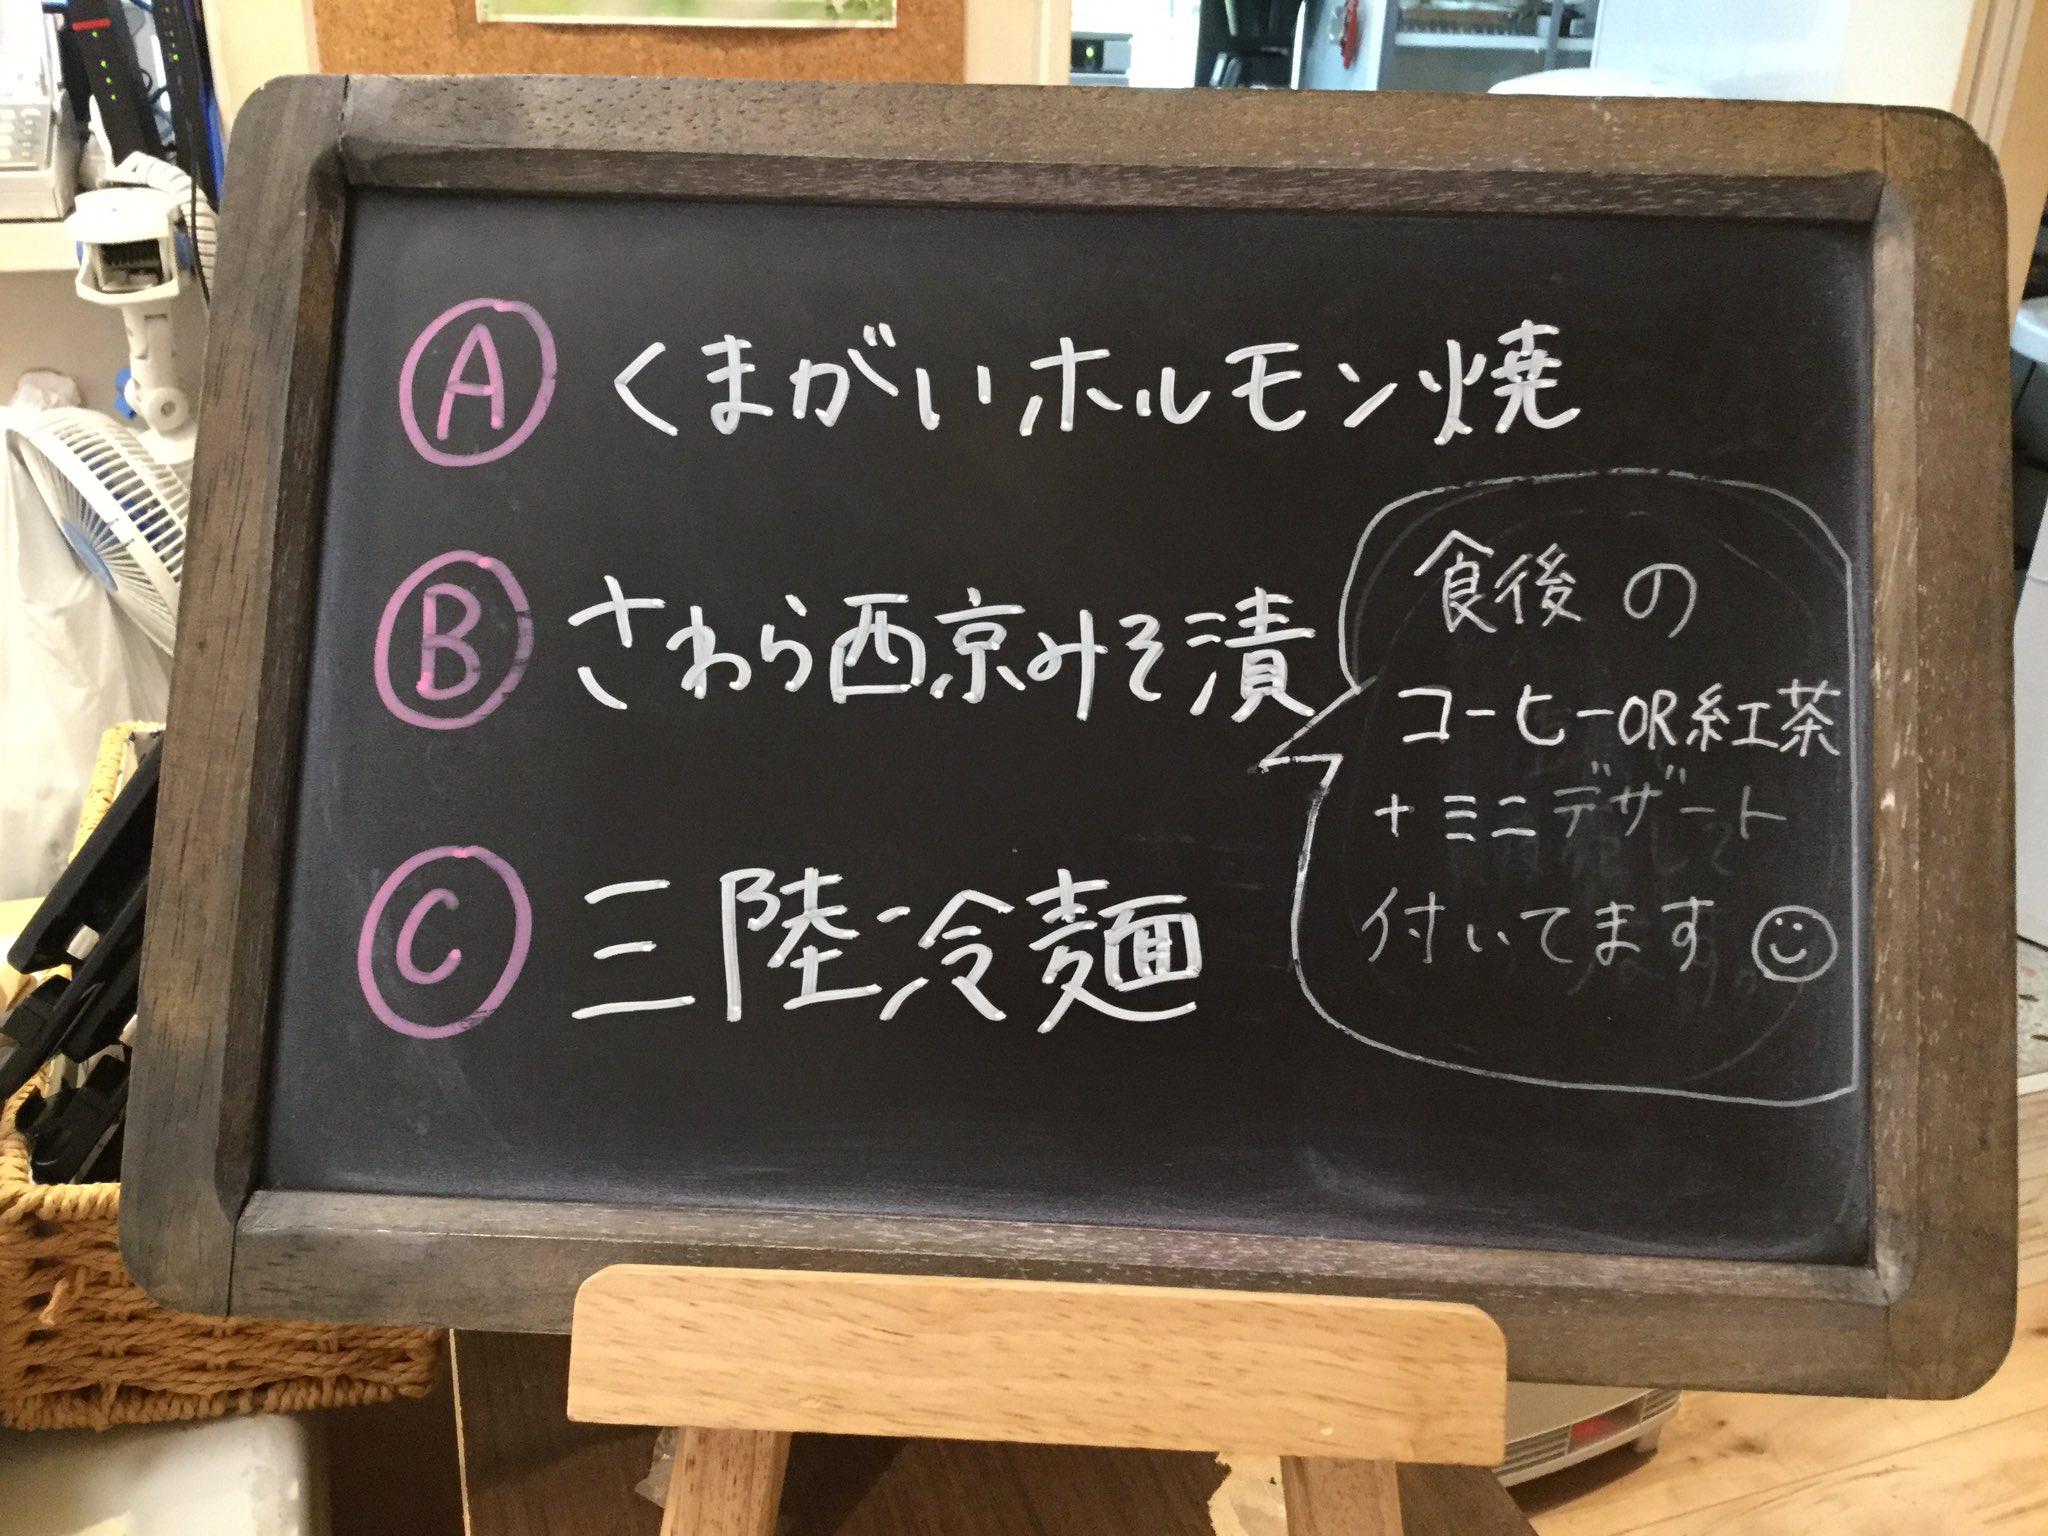 Ⓐ くまがいホルモン焼
Ⓑ さわら西京みそ漬
Ⓒ 三陸冷麺
食後の
コーヒーOR紅茶
+ミニデザート
付いてます